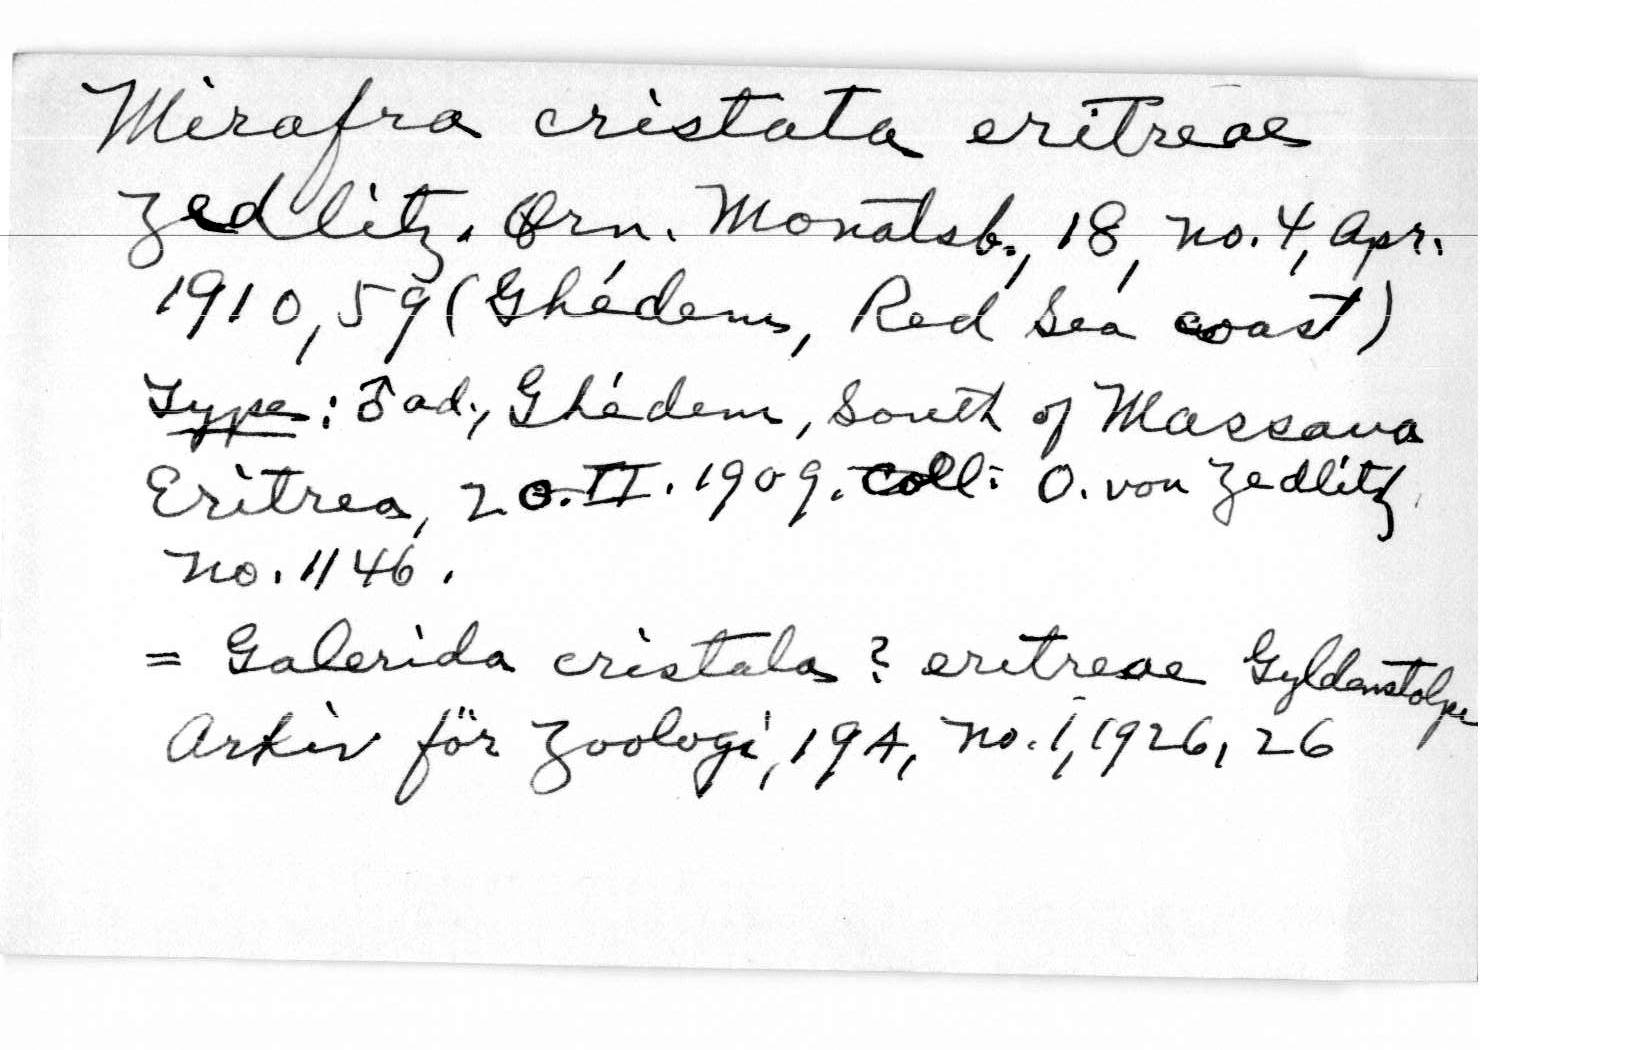 Mirafra cristata eritreae
Zedlitz. Orn. Monatsb., 18, no. 4, Apr.
1910, 59 (Ghédem, Red Sea coast)
Type: ♂ ad., Ghédem, South of Massaua
Eritrea, 20.II.1909. Coll: O. von Zedlitz
no. 1146.
= Galerida cristata ? eritreae Gyldenstolpe
Arkiv för Zoologi, 19A, no. 1, 1926, 26